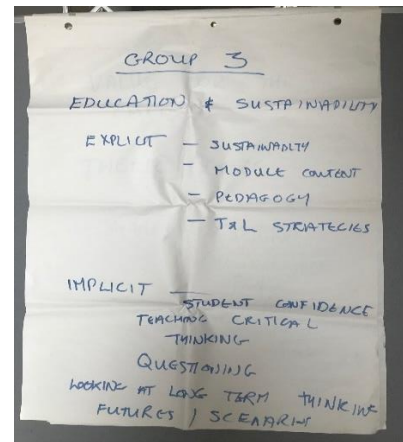 GROUP 3
EDUCATION & SUSTAINABILITY
EXPLICIT — SUSTAINABLTY
— MODULE CONTENT
— PEDAGOGY
— T&L STRATEGIES
IMPLICIT —
STUDENT CONFIDENCE
TEACHING CRITICAL
THINKING
QUESTIONING
LOOKING AT LONG TERM THINKING
FUTURES / SCENARIOS